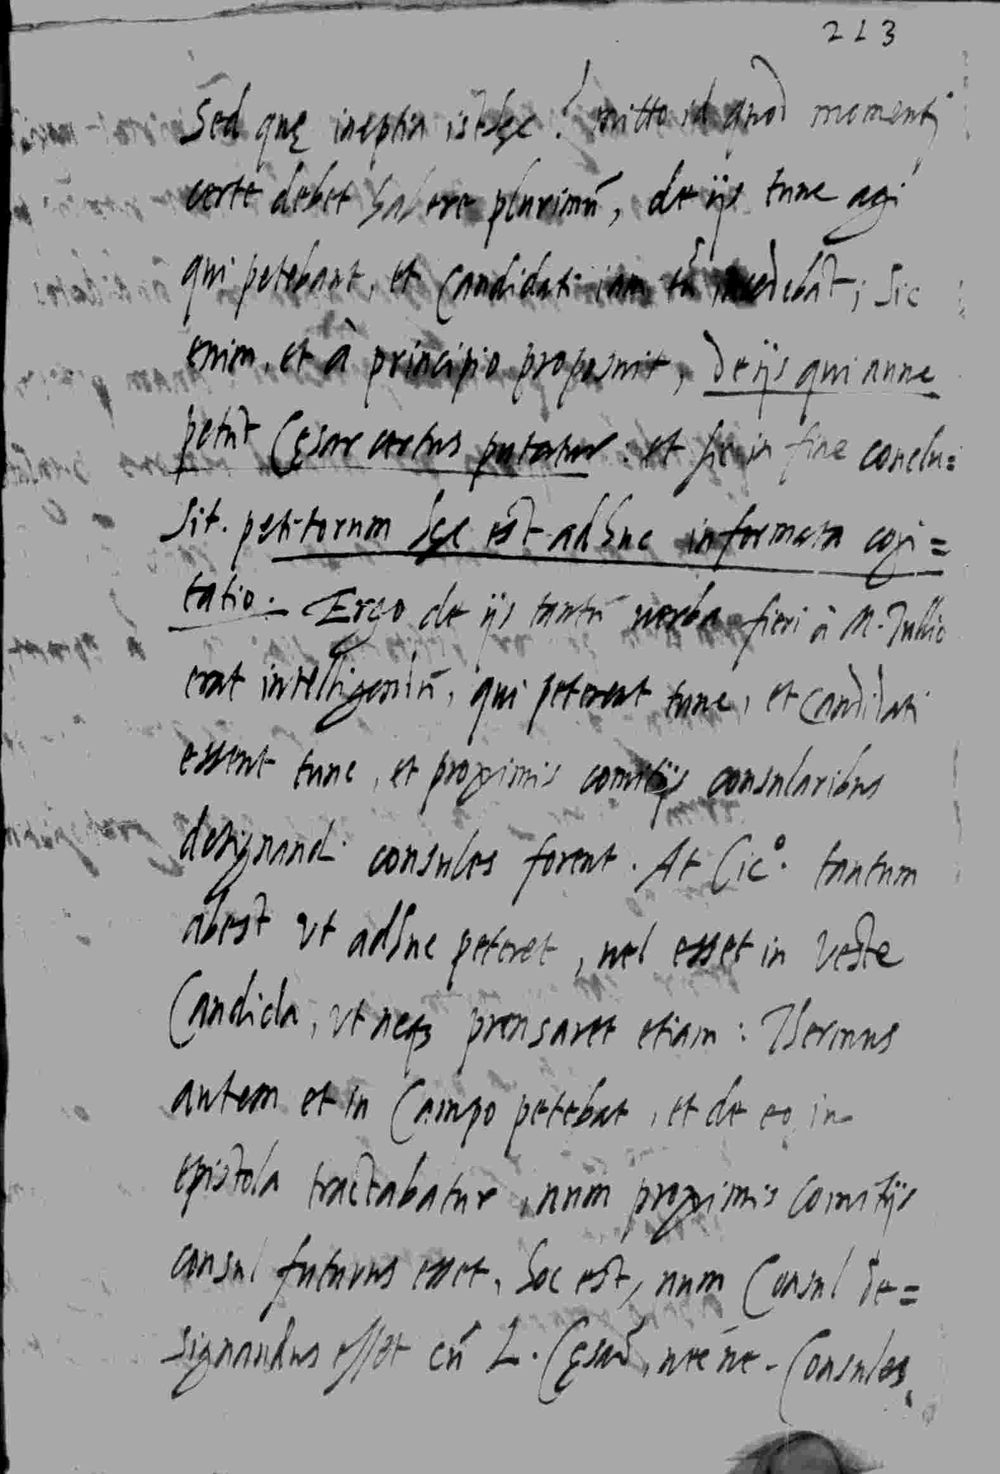 213
Sed quę ineptia isthęc! mitto id quod momenti
certe debet habere plurimū, de ijs tunc agi
qui petebant, et Candidati iam tū incedebāt; Sic
enim, et à principio proposuit, De ijs qui nunc
petūt Cęsar certus putatur: et sic in fine conclu=
sit. petitorum hęc est adhuc informata cogi=
tatio. Ergo de ijs tantū verba fieri à M. Tullio
erat intelligendū, qui peterent tunc, et candidati
essent tunc, et proximis comitijs consularibus
designandi consules forent. At Cicº. tantum
abest vt adhuc peteret, vel esset in veste
Candida, vt neqꝫ prensaret etiam: Thermus
autem et in Campo petebat, et de eo in
epistola tractabatur, num proximis comitijs
consul futurus esset, hoc est, num Consul de=
signandus esset cū L. Cęsare, Consules